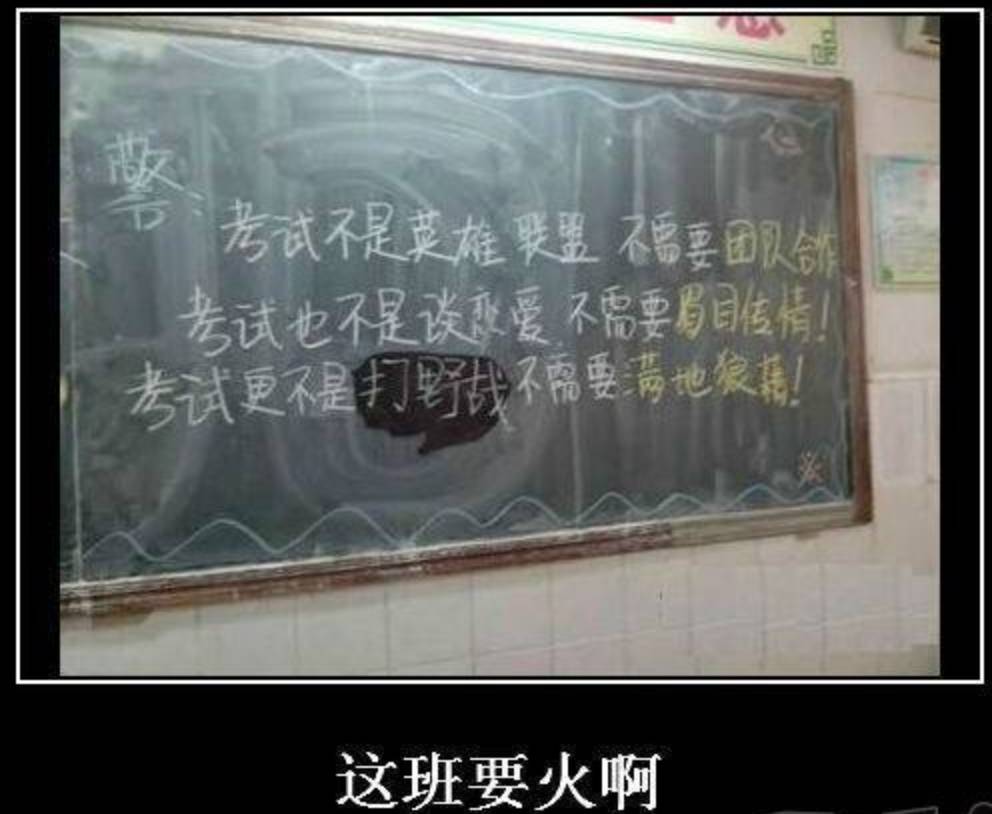 警:
考试不是英雄联盟 不需要团队合作
考试也不是谈恋爱 不需要眉目传情!
考试更不是打野战 不需要满地狼藉!
这班要火啊